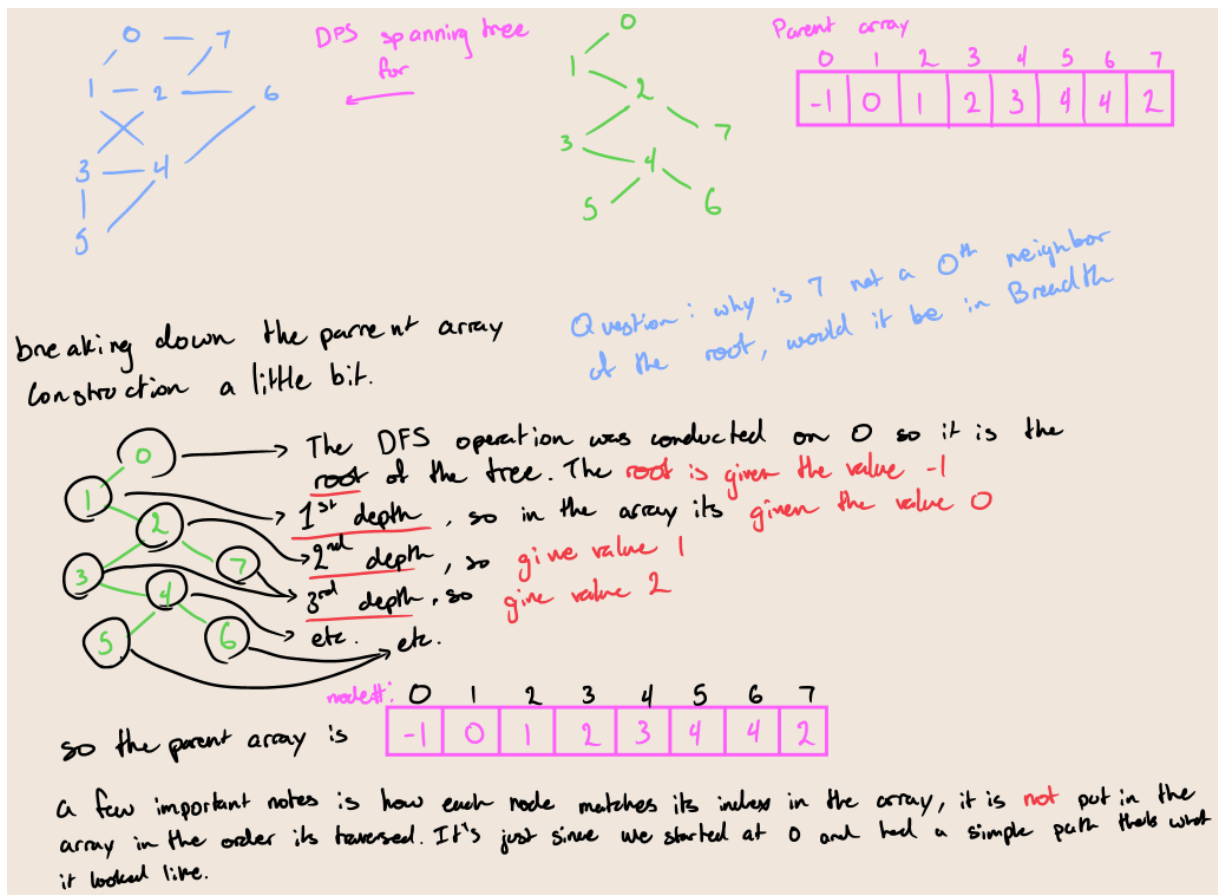 0 7
1 2 6
3 4
5
DFS spanning tree
for
0
1
2
3 7
4
5 6
Parent array
0 1 2 3 4 5 6 7
-1 0 1 2 3 4 4 2
Question: why is 7 not a 0th neighbor
of the root, would it be in Breadth
breaking down the parrent array
construction a little bit.
0
1
2
3 7
4
5 6
The DFS operation was conducted on 0 so it is the
root of the tree. The root is given the value -1
1st depth, so in the array its given the value 0
2nd depth, so give value 1
3rd depth, so give value 2
etc.
etc.
node#: 0 1 2 3 4 5 6 7
so the parent array is -1 0 1 2 3 4 4 2
a few important notes is how each node matches its index in the array, it is not put in the
array in the order its traversed. It's just since we started at 0 and had a simple path thats what
it looked like.